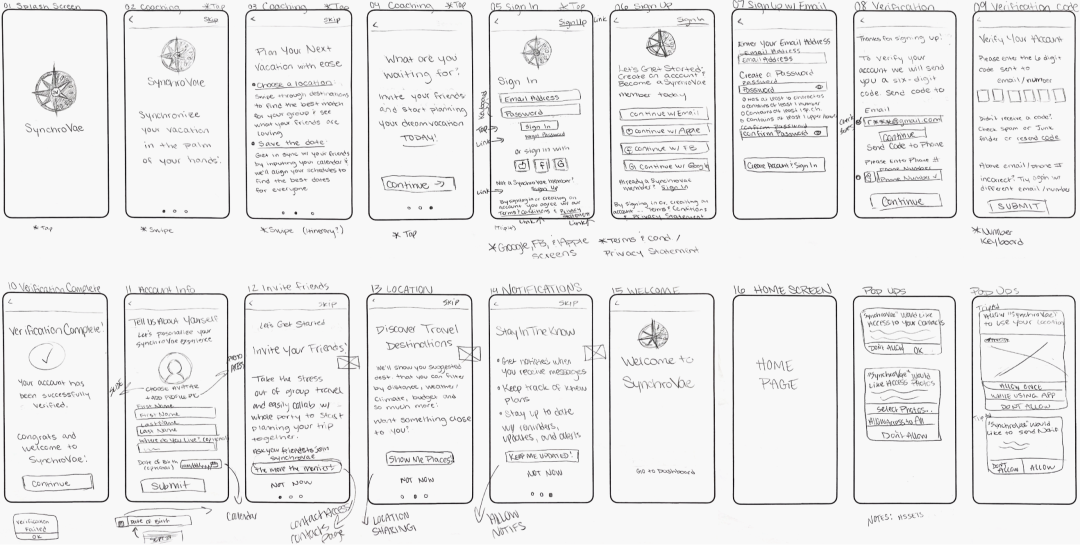 01 Splash Screen
SynchroVae
*Tap
02 Coaching *Tap
<
SKip
SynchroVae
Synchronize
your vacation
in the palm
of your hands!
*Swipe
03 Coaching *Tap
<
SKip
Plan Your Next
Vacation with ease
• Choose a location:
Swipe through destinations
to find the best match
for your group & see
what your friends are
loving
• Save the date
Get in sync w/ your friends
by inputting your calendar &
we'll align your schedules to
find the best dates
for everyone
*Swipe (itinerary?)
04 Coaching
*Tap
<
What are you
waiting for?
Invite your friends
and start planning
your dream vacation
TODAY!
Continue →
* Tap
05 Sign In *Tap
<
Sign Up
Link
Sign In
Email Address
Password
Sign In
Forgot Password
or sign in with
f G
Not a SynchroVae Member?
Sign Up
By signing or creating an
account you agree w/ our
Terms & Conditions & Privacy
Statement
Keyboard
Tap
Link
Link
*Google, FB, & Apple
screens
06 Sign Up
<
Sign In
Let's Get Started!
Create an account &
Become a SynchroVae
member today
Continue w/ Email
Continue w/ Apple
Continue w/ FB
G Continue w/ Google
Already a SynchroVae
member? Sign In
By signing in or, creating an
account ... Terms & Conditions
& Privacy Statement
*Terms & Cond /
Privacy Statement
07 Sign Up w/ Email
<
Enter Your Email Address
Email Address
Email Address
Create a Password
Password
Password
Confirm Password
Confirm Password
Create Account & Sign In
08 Verification
<
Thanks for signing up!
To verify your
account we will send
you a six-digit
code. Send code to
Email
@gmail.com
Continue
Send Code to Phone
Please Enter Phone #
Phone Number
Phone Number
Continue
09 Verification Code
<
Verify Your Account
Please enter the 6 digit
code sent to
email/number
Didn't receive a code?
Check Spam or Junk
folder or resend code
Above email/phone #
incorrect? Try again w/
different email/number
SUBMIT
*Number
Keyboard
10 Verification Complete
<
Verification Complete!
Your account has
been successfully
verified.
Congrats and
welcome to
SynchroVae!
Continue
Verification
Failed
OK
11 Account Info
<
Tell Us About Yourself
Let's personalize your
SynchroVae experience
CHOOSE AVATAR
+ ADD PROFILE PIC
First Name
First Name
Last Name
Last Name
Where do You Live? (optional)
Date of Birth
(optional)
Submit
Calendar
Date of Birth
12 Invite friends
<
SKIP
Let's Get Started
Invite Your Friends!
Take the stress
out of group travel
and easily collab w/
whole party to start
planning your trip
together.
Ask your friends to join
SynchroVae
The more the merrier!
NOT NOW
Contact Access
contacts
page
13 LOCATION
<
SKIP
Discover Travel
Destinations
We'll show you suggested
dest. that you can filter
by distance, weather/
climate, budget and
so much more!
Want something close
to you?
Show Me Places!
NOT NOW
LOCATION
SHARING!
14 NOTIFICATIONS
<
SKIP
Stay In The Know
• Get notified when
you receive messages
• Keep track of new
plans
• Stay up to date
w/ reminders,
updates, and alerts
KEEP ME UPDATED!
NOT NOW
ALLOW
NOTIFS
15 WELCOME
<
Welcome to
SynchroVae
Go to Dashboard
16 HOME SCREEN
HOME
PAGE
POP UPS
"SynchroVae" Would Like
Access to Your Contacts
DON'T ALLOW OK
"SynchroVae" Would
Like Access Photos
Select Photos...
Allow Access to All
Don't Allow
NOTES: ASSETS
POP UPS
Allow "SynchroVae"
to use your location
ALLOW ONCE
WHILE USING APP
DON'T ALLOW
"SynchroVae" Would
Like to send Notifs
DON'T
ALLOW
ALLOW